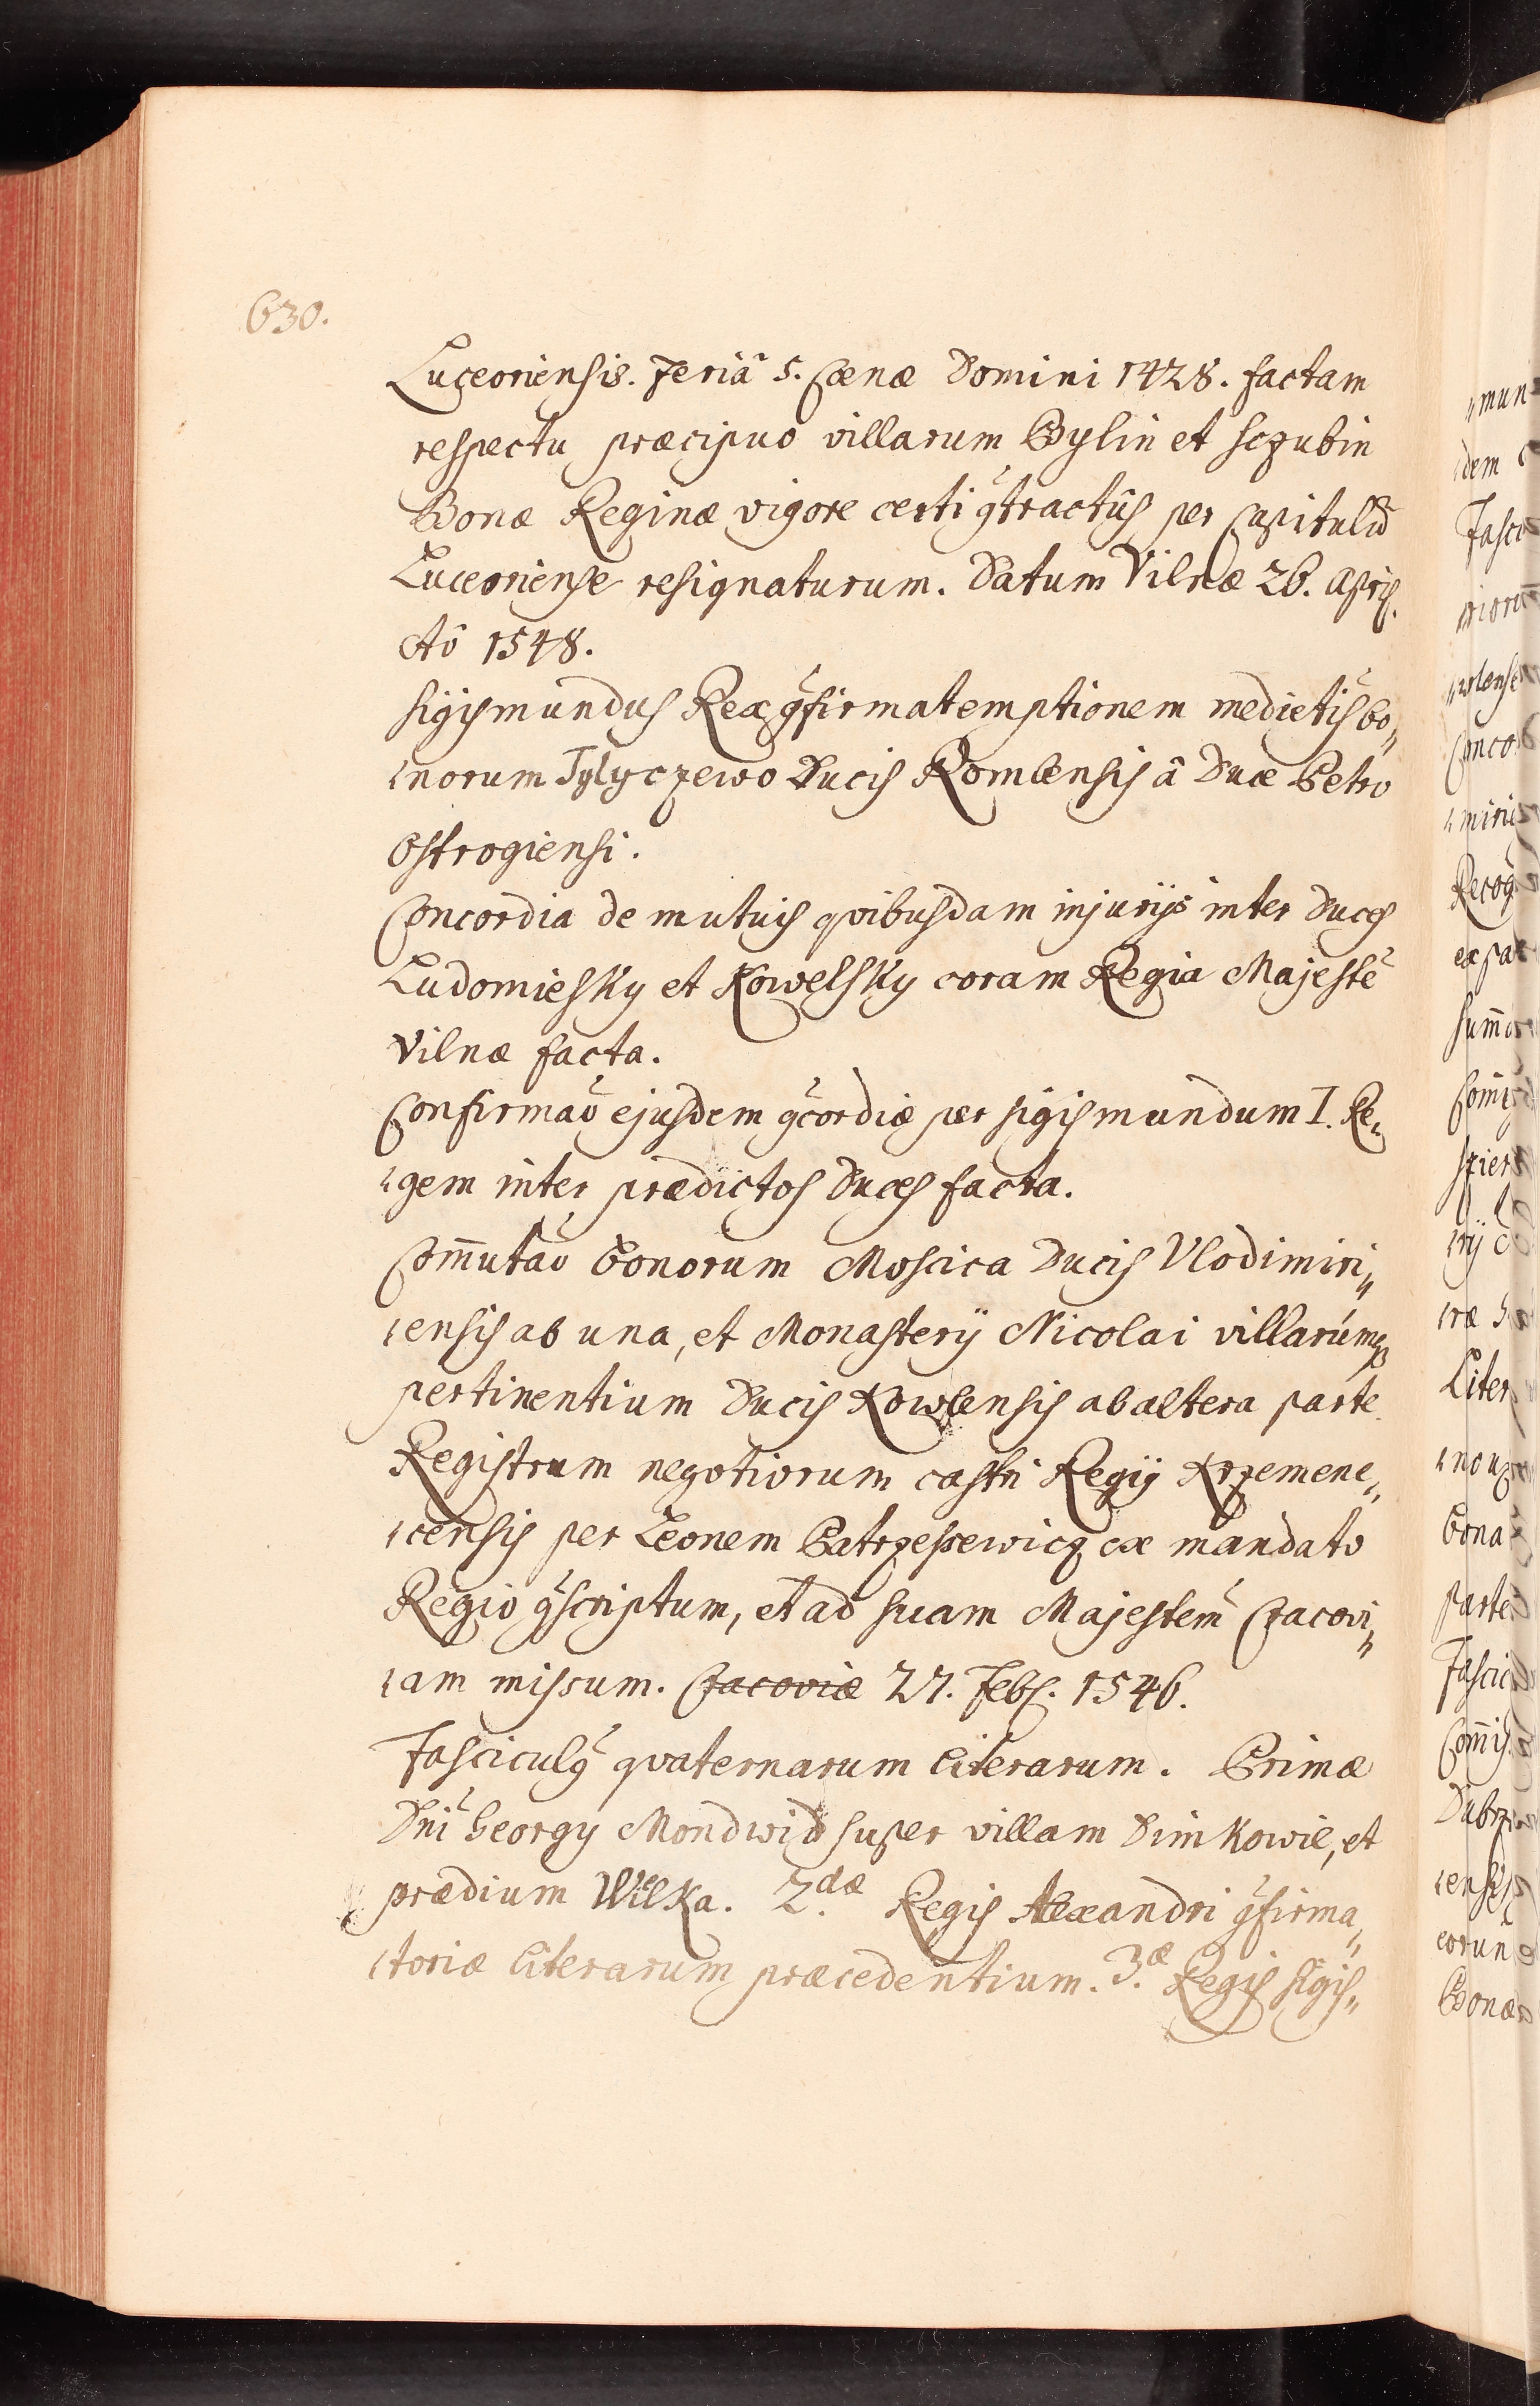 630.
Luceoriensis. Feriâ 5. Cœnæ Domini 1428. factam
respectu præcipuo villarum Bylin et Sczubin
Bonæ Reginæ vigore certi ꝯtractûs per Capitulũ
Luceoriense resignaturum. Datum Vilnæ 26. Apris.
Aô 1548.
Sigismundus Rex ꝯfirmat emptionem medietis bo„
„norum Tylyczewo Ducis Romlensis â Duce Petro
Ostrogiensi.
Concordia de mutuis qvibusdam injurijs inter Duces
Ludomiesky et Kowelsky coram Regia Majeste
Vilnæ facta.
Confirmao ejusdem ꝯcordiæ per Sigismundum I. Re„
„gem inter prædictos Duces facta.
Com̄utao Bonorum Moscica Ducis Vlodimiri„
„ensis ab una, et Monasterÿ Nicolai villarúmqȝ
pertinentium Ducis Kowlensis ab altera parte.
Registrum negotiorum castri Regÿ Krzemene„
„censis per Leonem Patrzessewicz ex mandato
Regio ꝯscriptum, et ad suam Majestem Cracovi„
„am missum. Cracoviæ 27. Febr. 1546.
Fasciculꝯ qvaternarum literarum. Primæ
Dni Georgy Mondwid super villam Dimkowie, et
prædium Wielka. 2.dæ Regis Alexandri ꝯfirma„
„toriæ literarum præcedentium. 3.æ Regis Sigis„
„mun
Fasci
Recog
Liter
Bona
parte
Fascic
Bonæ